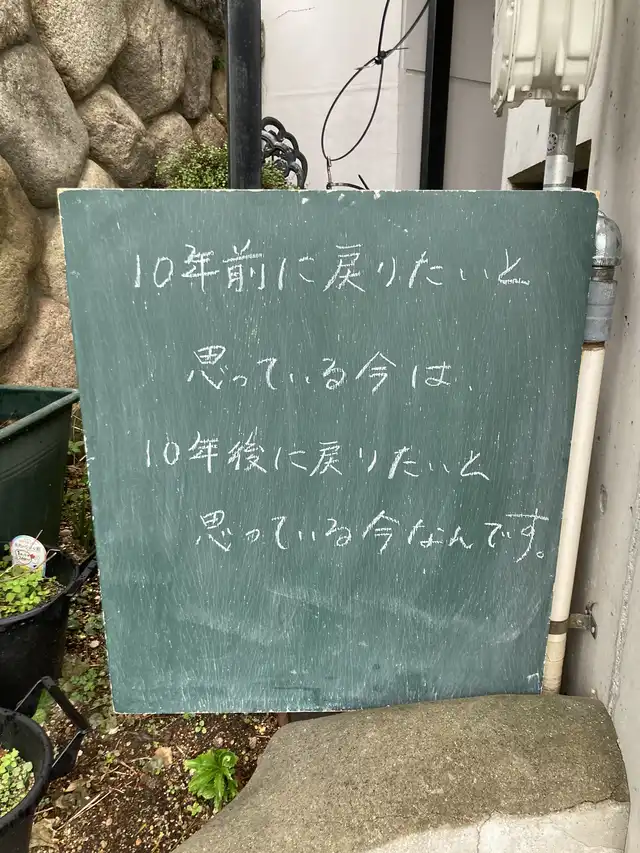 10年前に戻りたいと
思っている今は、
10年後に戻りたいと
思っている今なんです。